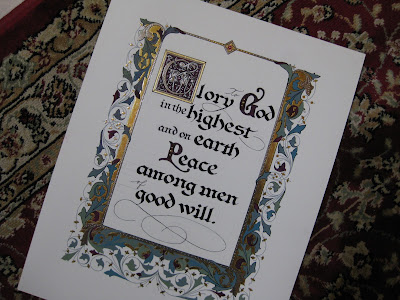 Glory to God
in the highest
and on earth
Peace
among men
of good will.